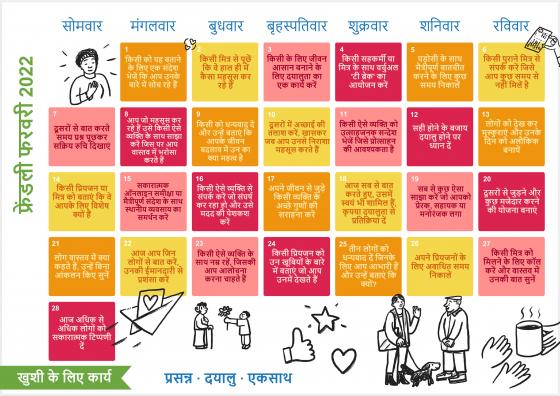 फ्रेंडली फरवरी 2022
सोमवार मंगलवार बुधवार बृहस्पतिवार शुक्रवार शनिवार रविवार
1
किसी को यह बताने
के लिए एक संदेश
भेजें कि आप उनके
बारे में सोच रहे हैं
2
किसी मित्र से पूछें
कि वे हाल ही में
कैसा महसूस कर
रहे हैं
3
किसी के लिए जीवन
आसान बनाने के
लिए दयालुता का
एक कार्य करें
4
किसी सहकर्मी या
मित्र के साथ वर्चुअल
'टी ब्रेक' का
आयोजन करें
5
पड़ोसी के साथ
मैत्रीपूर्ण बातचीत
करने के लिए कुछ
समय निकालें
6
किसी पुराने मित्र से
संपर्क करें जिसे
आप कुछ समय से
नहीं मिले है
7
दूसरों से बात करते
समय प्रश्न पूछकर
सक्रिय रुचि दिखाएं
8
आप जो महसूस कर
रहे हैं उसे किसी ऐसे
व्यक्ति के साथ साझा
करें जिस पर आप
वास्तव में भरोसा
करते हैं
9
किसी को धन्यवाद दें
और उन्हें बताएं कि
आपके जीवन
बदलाव में उन का
क्या महत्व है
10
दूसरों में अच्छाई की
तलाश करें, ख़ासकर
जब आप उनसे निराशा
महसूस करते हैं
11
किसी ऐसे व्यक्ति को
उत्साहजनक सन्देश
भेजें जिसे प्रोत्साहन
की आवश्यकता है
12
सही होने के बजाय
दयालु होने पर
ध्यान दें
13
लोगों को देख कर
मुस्कुराएं और उनके
दिन को अलौकिक
बनायें
14
किसी प्रियजन या
मित्र को बताएं कि वे
आपके लिए विशेष
क्यों हैं
15
सकारात्मक
ऑनलाइन समीक्षा या
मैत्रीपूर्ण संदेश के साथ
स्थानीय व्यवसाय का
समर्थन करें
16
किसी ऐसे व्यक्ति से
संपर्क करें जो संघर्ष
कर रहा हो, उसे
मदद की पेशकश
करें
17
अपने जीवन से जुड़े
किसी व्यक्ति के
अच्छे गुणों की
सराहना करें
18
आज सब से बात
करते हुए, उसमें
स्वयं भी शामिल हैं,
कृपया दयालुता से
प्रतिक्रिया दें
19
सब से कुछ ऐसा
साझा करें जो आपको
प्रेरक, सहायक या
मनोरंजक लगा
20
दूसरों से जुड़ने और
कुछ मजेदार करने
की योजना बनाएं
21
लोग वास्तव में क्या
कहते हैं, उन्हें बिना
आंकलन किए सुनें
22
आज आप जिन
लोगों से बात करें,
उनकी ईमानदारी से
प्रशंसा करें
23
किसी ऐसे व्यक्ति के
साथ नम्र रहें, जिसकी
आप आलोचना
करना चाहते हैं
24
किसी प्रियजन को
उन खूबियों के बारे
में बताएं जो आप
उनमें देखते हैं
25
तीन लोगों को
धन्यवाद दें जिनके
लिए आप आभारी हैं
और उन्हें बताएं कि
क्यों?
26
अपने प्रियजनों के
लिए अबाधित समय
निकालें
27
किसी मित्र को
मिलने के लिए कॉल
करें और वास्तव में
उनकी बात सुनें
28
आज अधिक से
अधिक लोगों को
सकारात्मक टिप्पणी
दें
खुशी के लिए कार्य
प्रसन्न · दयालु · एकसाथ